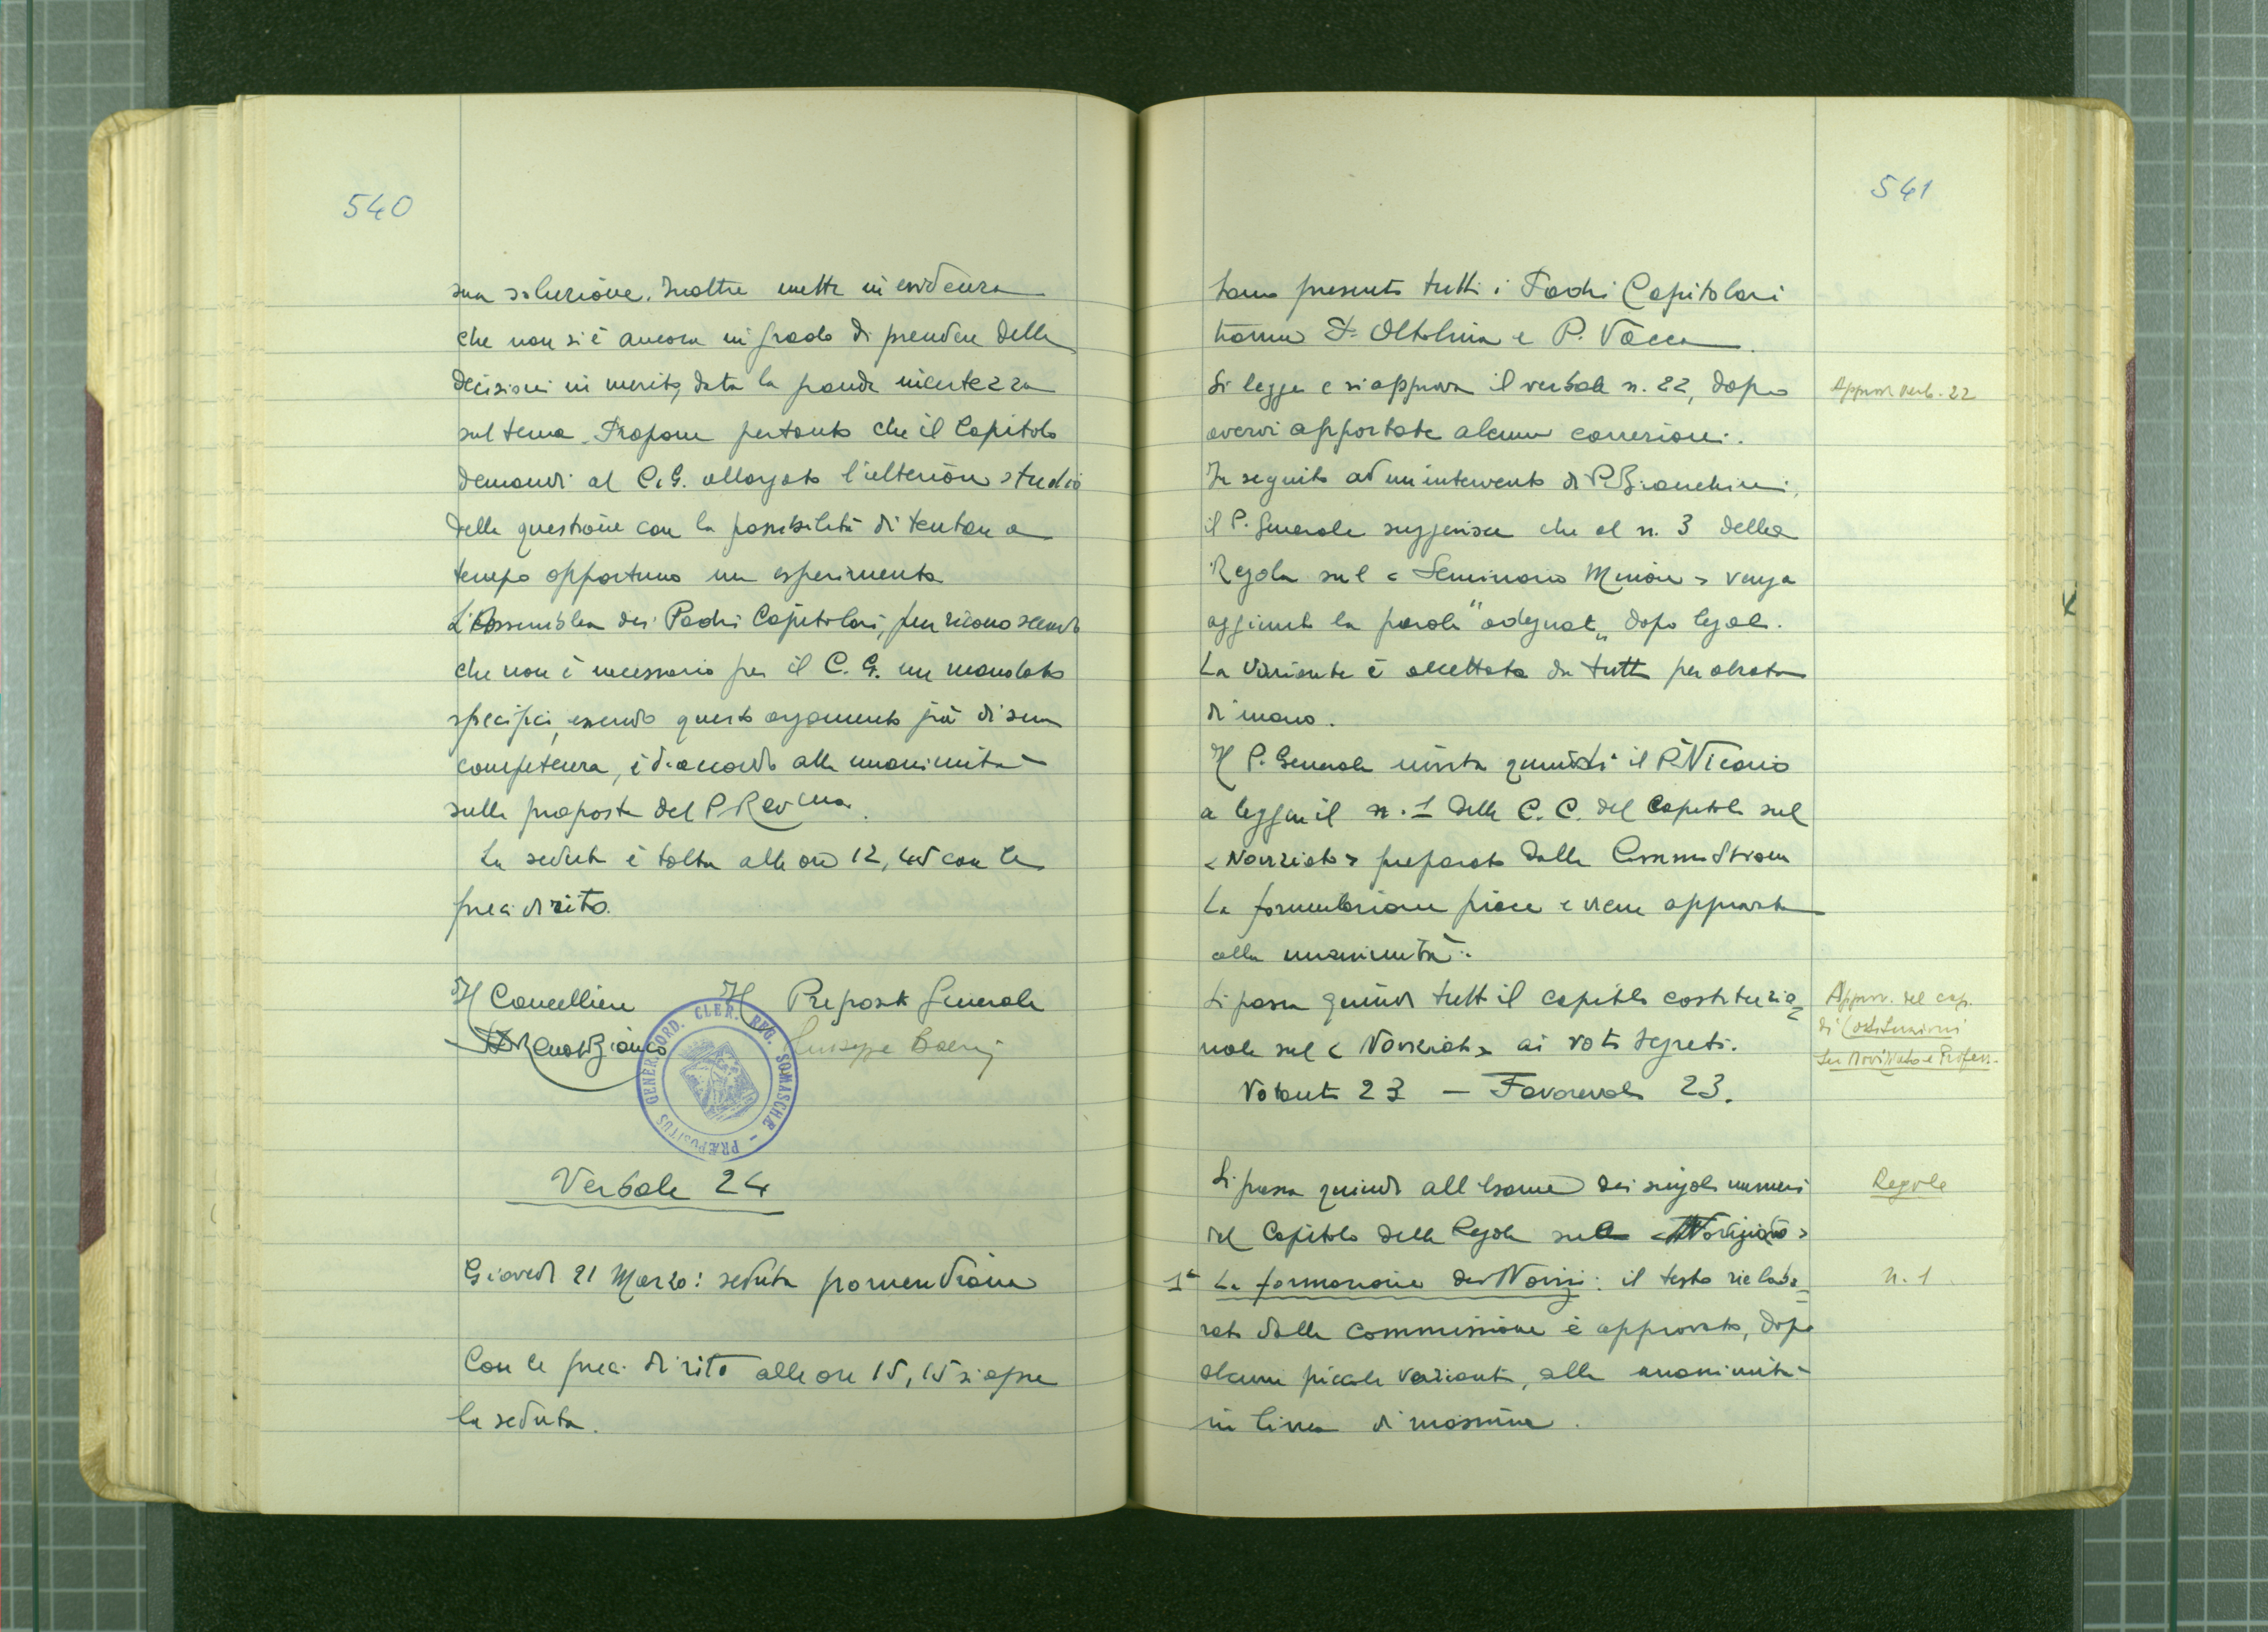 540
sua soluzione. Inoltre mette in evidenza
che non si è ancora in grado di prendere delle
decisioni in merito, data la grande incertezza
sul tema. Propone pertanto che il Capitolo
demandi al C.G. allargato l'ulteriore studio
della questione con la possibilità di tentare a
tempo opportuno un esperimento
L'Assemblea dei Padri Capitolari, pur riconoscendo
che non è necessario per il C. G. un mandato
specifico, essendo questo argomento già di sua
competenza, è d'accordo alla unanimità
sulla proposta del P. Rev.mo.
La seduta è tolta alle ore 12,45 con le
preci di rito.
Il Cancelliere Il Preposito Generale
Giuseppe
PRÆPOSITUS GENER. ORD. CLER. REG. SOMASCHÆ
Verbale 24
Giovedì 21 Marzo: seduta pomeridiana
Con le preci di rito alle ore 15,15 si apre
la seduta.
541
Sono presenti tutti i Padri Capitolari
tranne P. Oltolina e P. Vacca.
Si legge e si approva il verbale n. 22, dopo
avervi apportate alcune correzioni.
Approv. verb. 22
In seguito ad un intervento di P. Bianchini,
il P. Generale suggerisce che al n. 3 della
Regola sul « Seminario Minore » venga
aggiunta la parola "adeguat" dopo legale.
La variante è accettata da tutti per alzata
di mano.
Il P. Generale invita quindi il P. Vicario
a leggere il n. 1 delle C. C. del Capitolo sul
« Noviziato » preparato dalla Commissione
La formulazione piace e viene approvata
alla unanimità.
Si passa quindi tutto il capitolo costituzio=
nale sul « Noviziato » ai voti segreti.
Approv. del cap.
di Costituzioni
su Noviziato e Profess.
Votanti 23 — Favorevoli 23.
Si passa quindi all'esame dei singoli numeri
del Capitolo della Regola sul « Noviziato »
Regole
1° La formazione dei Novizi: il testo rielabo=
rato dalla commissione è approvato, dopo
alcune piccole varianti, alla unanimità
in linea di massima.
n. 1